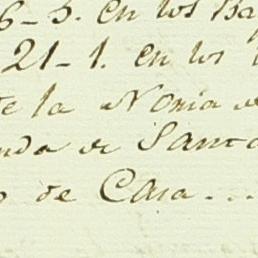 6-5. en los Ba
21-1. en los
de la Noria de
nda de Santa
o de Casa....